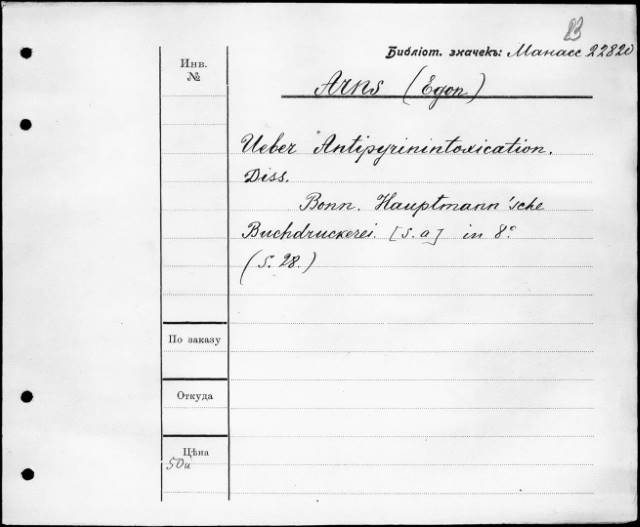 23
Библіот. значекъ: Манасс 22820
Инв.
№
Arns (Egon)
Ueber Antipyrinintoxication.
Diss.
Bonn. Hauptmann'sche
Buchdruckerei. [S. a] in 8°
(S. 28.)
По заказу
Откуда
Цѣна